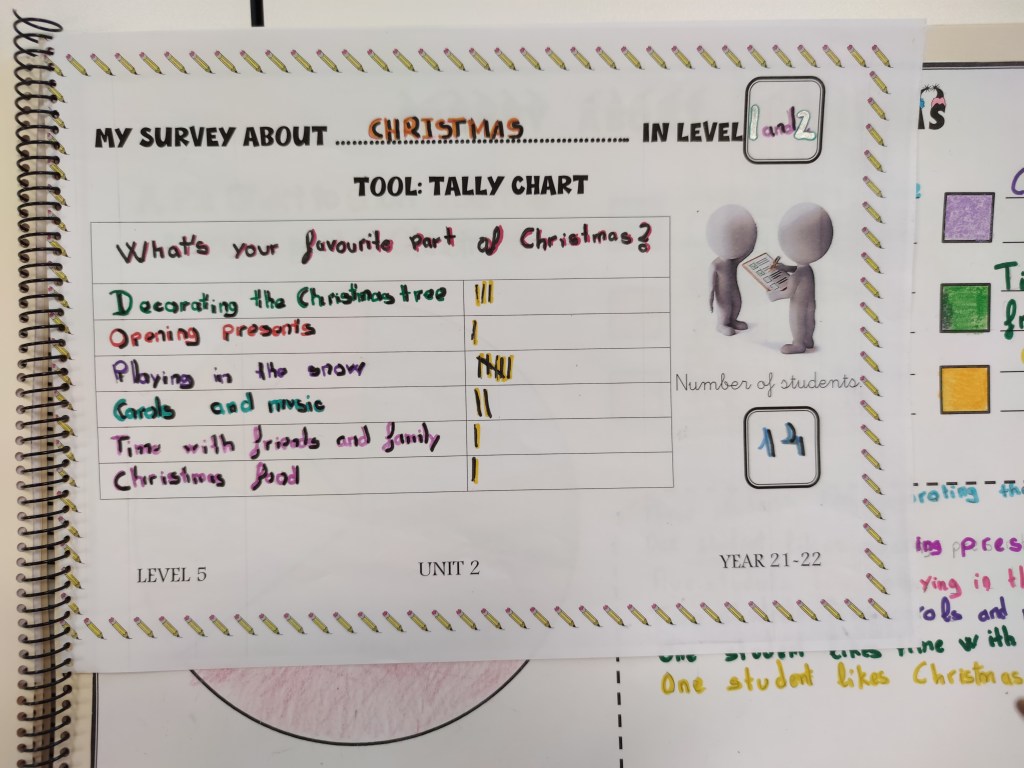 MY SURVEY ABOUT CHRISTMAS IN LEVEL 1 and 2
TOOL: TALLY CHART
What's your favourite part of Christmas?
Decorating the Christmas tree
Opening presents
Playing in the snow
Carols and music
Time with friends and family
Christmas food
Number of students:
14
LEVEL 5 UNIT 2 YEAR 21-22
pres
and
with
One student likes Christmas